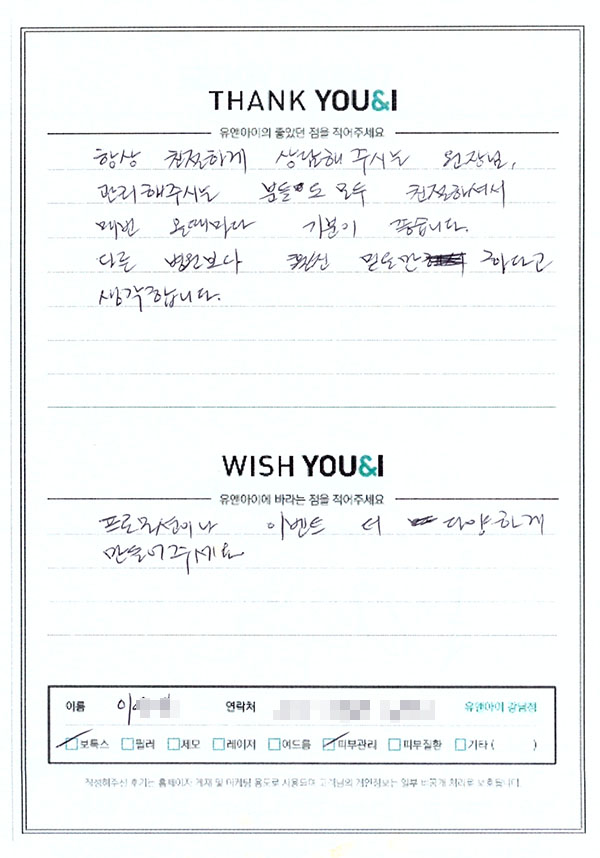 THANK YOU&I
유앤아이의 좋았던 점을 적어주세요
항상 친절하게 상담해 주시는 원장님,
관리해주시는 분들도 모두 친절하셔서
매번 올때마다 기분이 좋습니다.
다른 병원보다 훨씬 믿을만 하다고
생각합니다.
WISH YOU&I
유앤아이에 바라는 점을 적어주세요
프로모션이나 이벤트 더 다양하게
만들어주세요
이름 이 연락처 유앤아이 강남점
보톡스 필러 제모 레이저 여드름 피부관리 피부질환 기타 ( )
작성해주신 후기는 홈페이지 게재 및 마케팅 용도로 사용되며 고객님의 개인정보는 일부 비공개 처리로 보호됩니다.